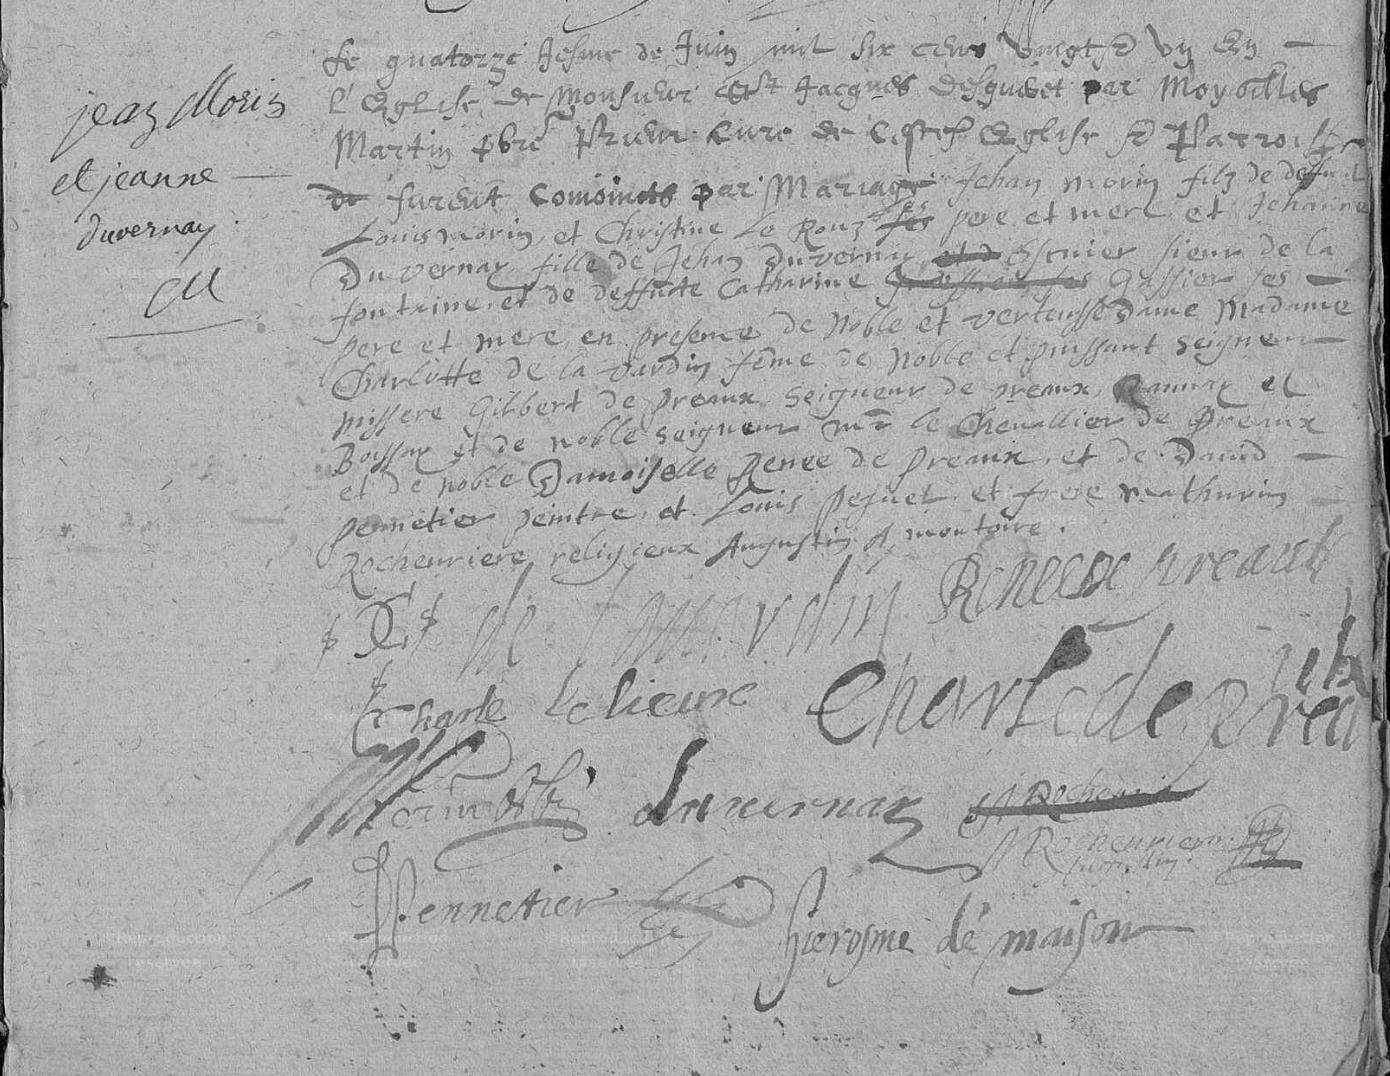 jean Morin
et jeanne
duvernay
CM
Le quatorze Jesme de Juin mil six cens vingt & vij En
l'Eglise de Monsieur Sst Jacques desgueret par Moy Gilles
Martin pbre Prieur Cure de Ceste Eglise & Parroisse
de furent Conioincts par Mariage Jehan morin filz de deffunct
Louis morin, et Christine Le Rouz ses pere et mere et Jehanne
Du vernay fille de Jehan Duvernay et d Escuier sieur de la
fontaine et de deffuncte Catharine Gassier ses
pere et mere en presence de Noble et vertusse Dame Madame
Charlotte de la vardin feme de Noble et puissant seigneur
missere Gilbert de preaux seigneur de preaux, Rannay et
Boissay et de noble seigneur mr le Chevallier de Preaux
et de noble Damoiselle Renee de Preaux, et de David
pennetier peintre, et Louis pesnel, et frere mathurin
Rocheuriere religieux Augustin A montoire.
C de vardin Renee de preaulx
Charle Le lieure Charle de prea
Morin duvernay Rocheuri
Rocheuriere
Pennetier hierosme de maison